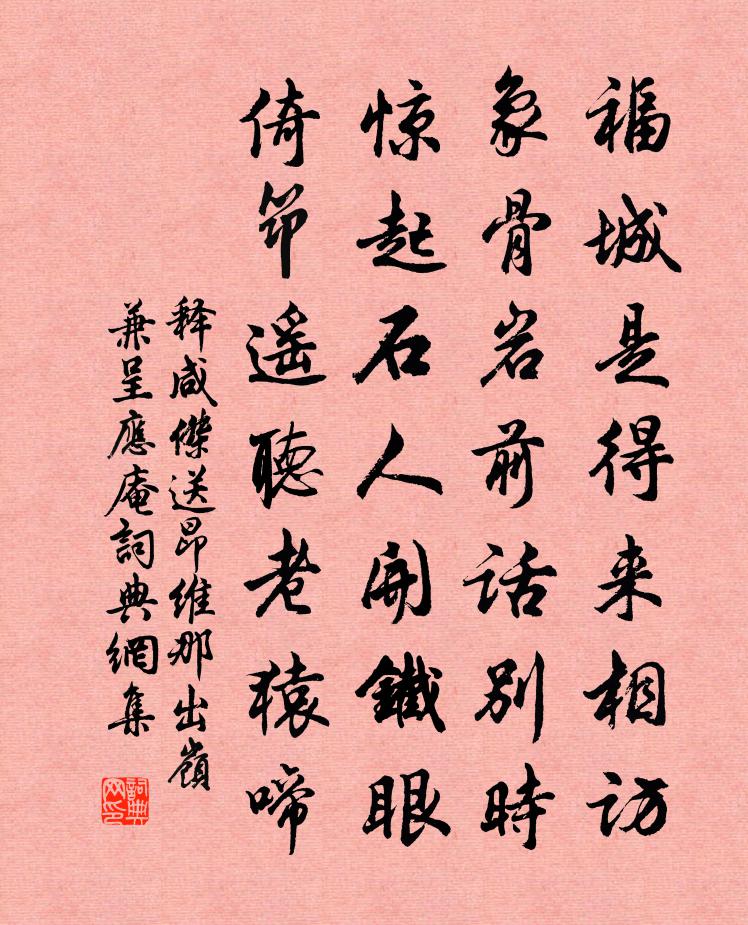 福城是得来相访
象骨岩前话别時
惊起石人開鐵眼
倚筇遥聽老猿啼
釋咸傑送昂維那出嶺
兼呈應庵詞典網集
詞典网印